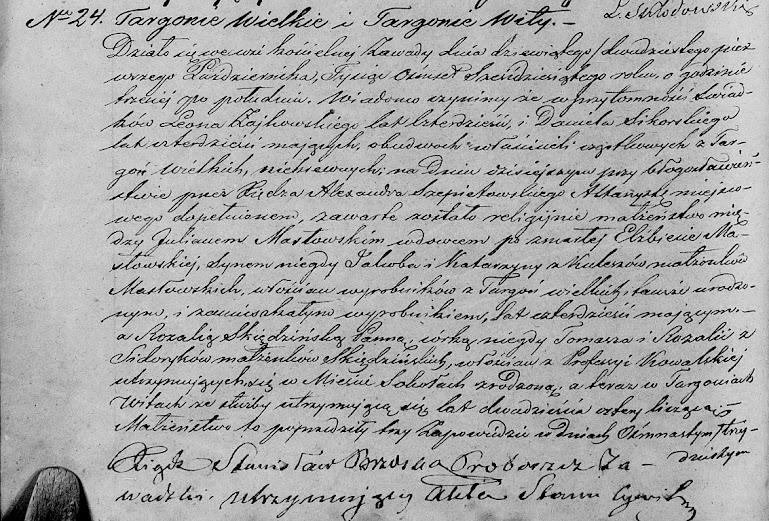 Nro 24. Targonie Wielkie i Targonie Wity. —
Działo się we wsi kościelnej Zawady dnia dziewiątego / dwudziestego pier
wszego Października, Tysiąc Ośmset Sześćdziesiątego roku, o godzinie
trzeciej po południu. Wiadomo czynimy że w przytomności świad-
ków Leona Zajkowskiego lat czterdzieści, i Daniela Sikorskiego
lat czterdzieści mających, obudwóch właścicieli cząstkowych z Tar-
goń Wielkich, niekrewnych; na dniu dzisiejszym przy błogosławień-
stwie przez Księdza Alexandra Szepietowskiego miejsco-
wego dopełnionem, zawarte zostało religijnie małżeństwo mię-
dzy Julianem Masłowskim wdowcem po zmarłej Elżbiecie Ma-
słowskiej, synem niegdy Jakóba i Katarzyny z Kuleszów małżonków
Masłowskich, włościan wyrobników z Targoń wielkich, tamże urodzo-
nym, i zamieszkałym wyrobnikiem, lat czterdzieści mającym. —
a Rozalią Skędzińską Panną, córką niegdy Tomasza i Rozalii z
Sidoryków małżonków Skędzińskich, włościan z Professyi Kowalskiej
utrzymujących się w Mieście Sokołach zrodzoną, a teraz w Targoniach
Witach ze służby utrzymującą się lat dwadzieścia cztery liczącą. —
Małżeństwo to poprzedziły trzy Zapowiedzie w dniach Ośmnastym / trzy-
dziestym
Ksiądz Stanisław Brzoska Proboszcz Za-
wadzki utrzymujący Akta Stanu Cywil